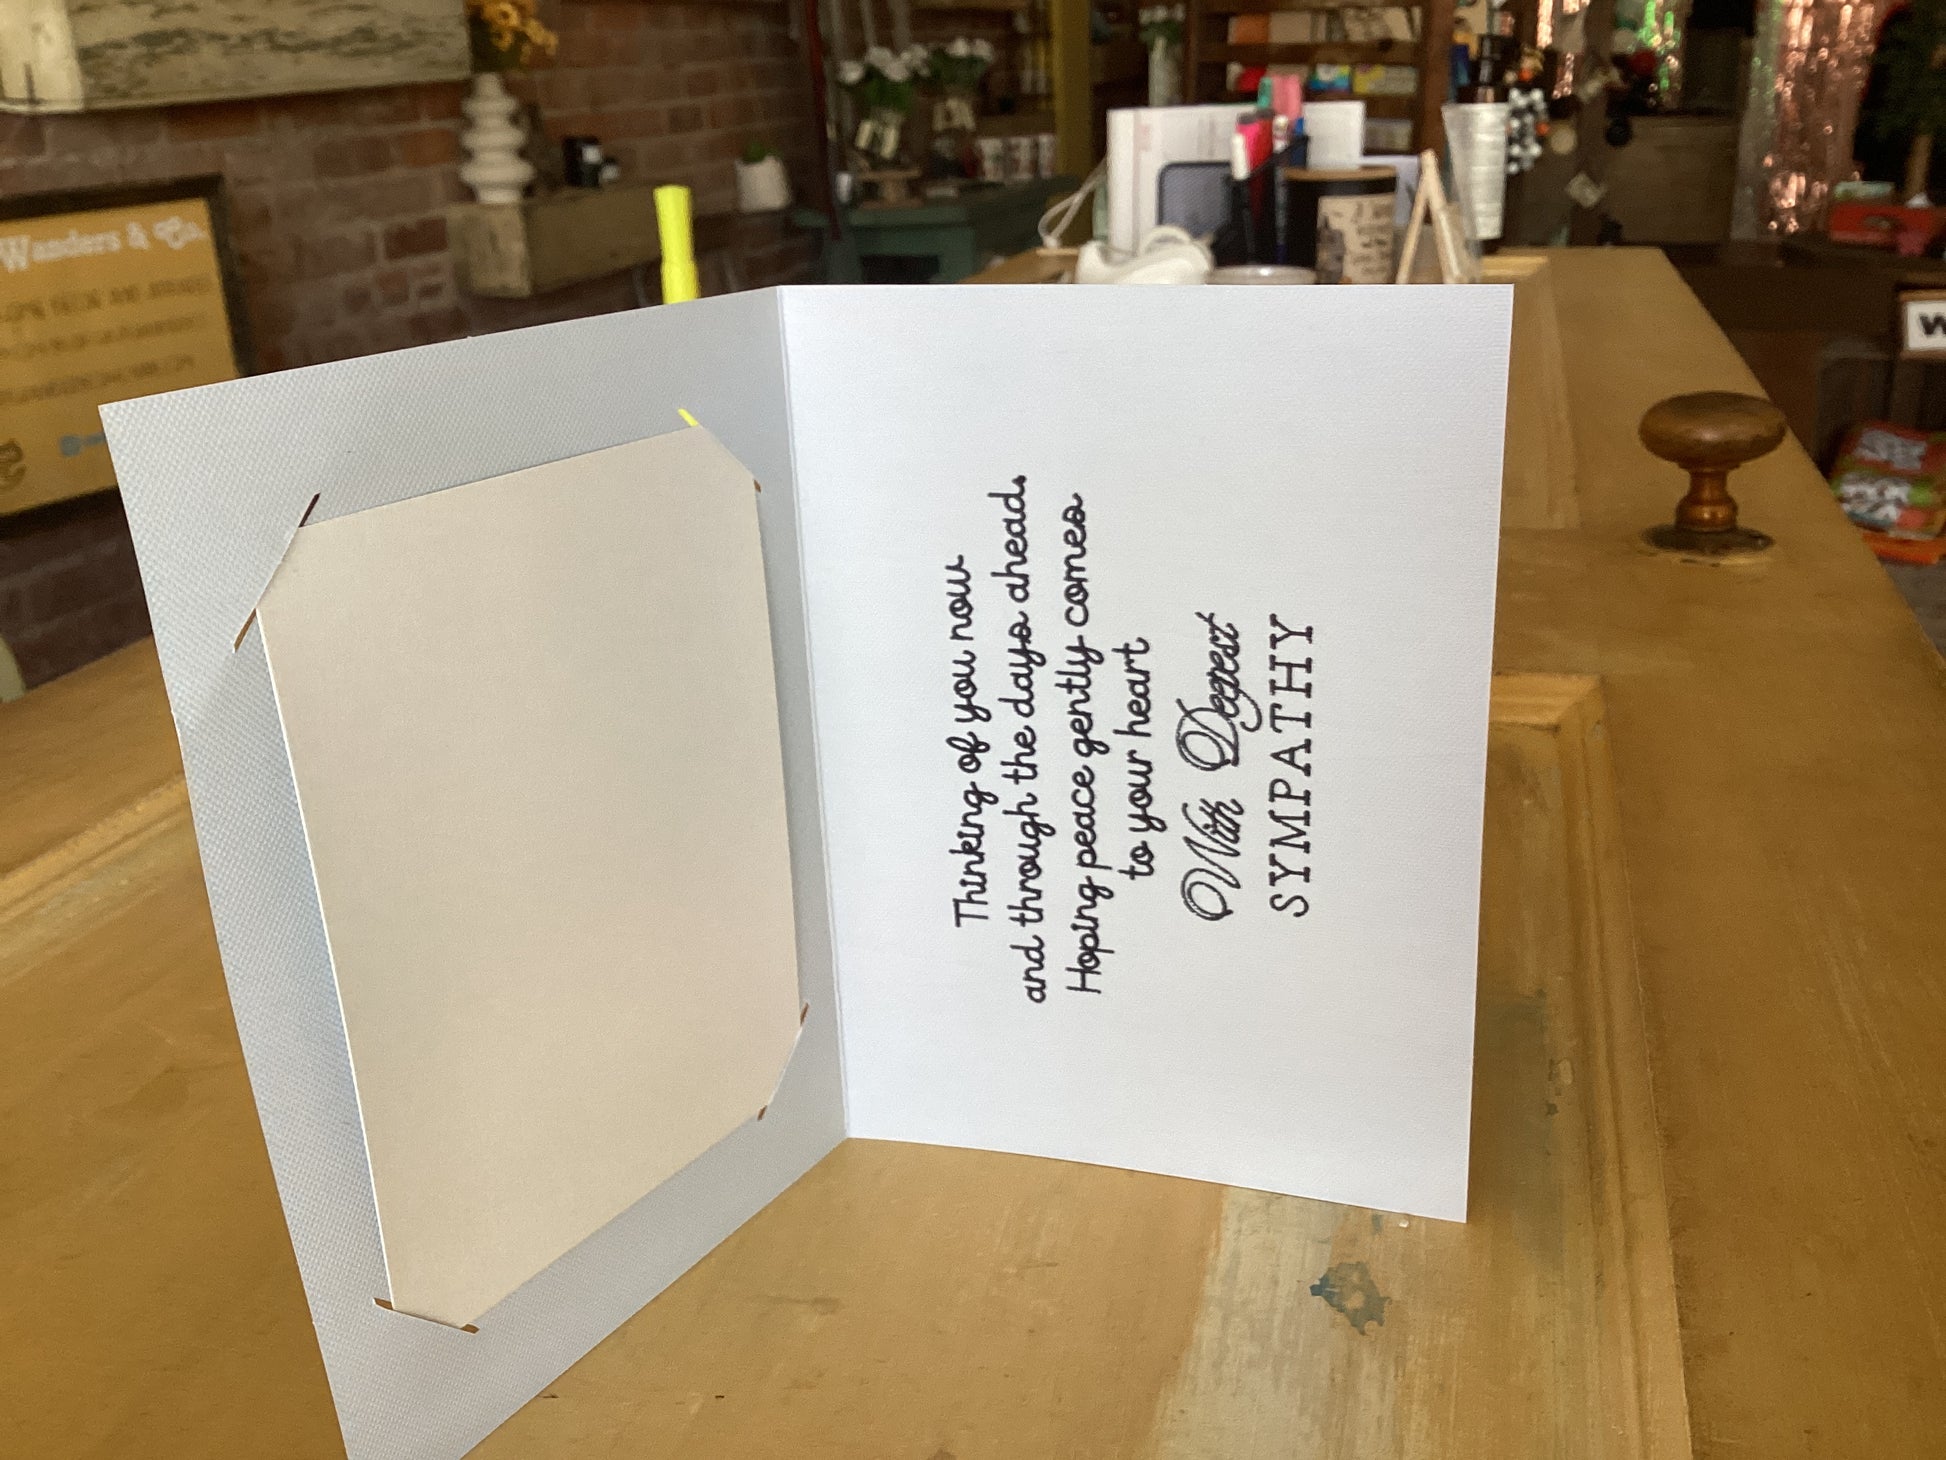 Thinking of you now
and through the days ahead.
Hoping peace gently comes
to your heart
With Deepest
SYMPATHY
Wanders & Co.
W